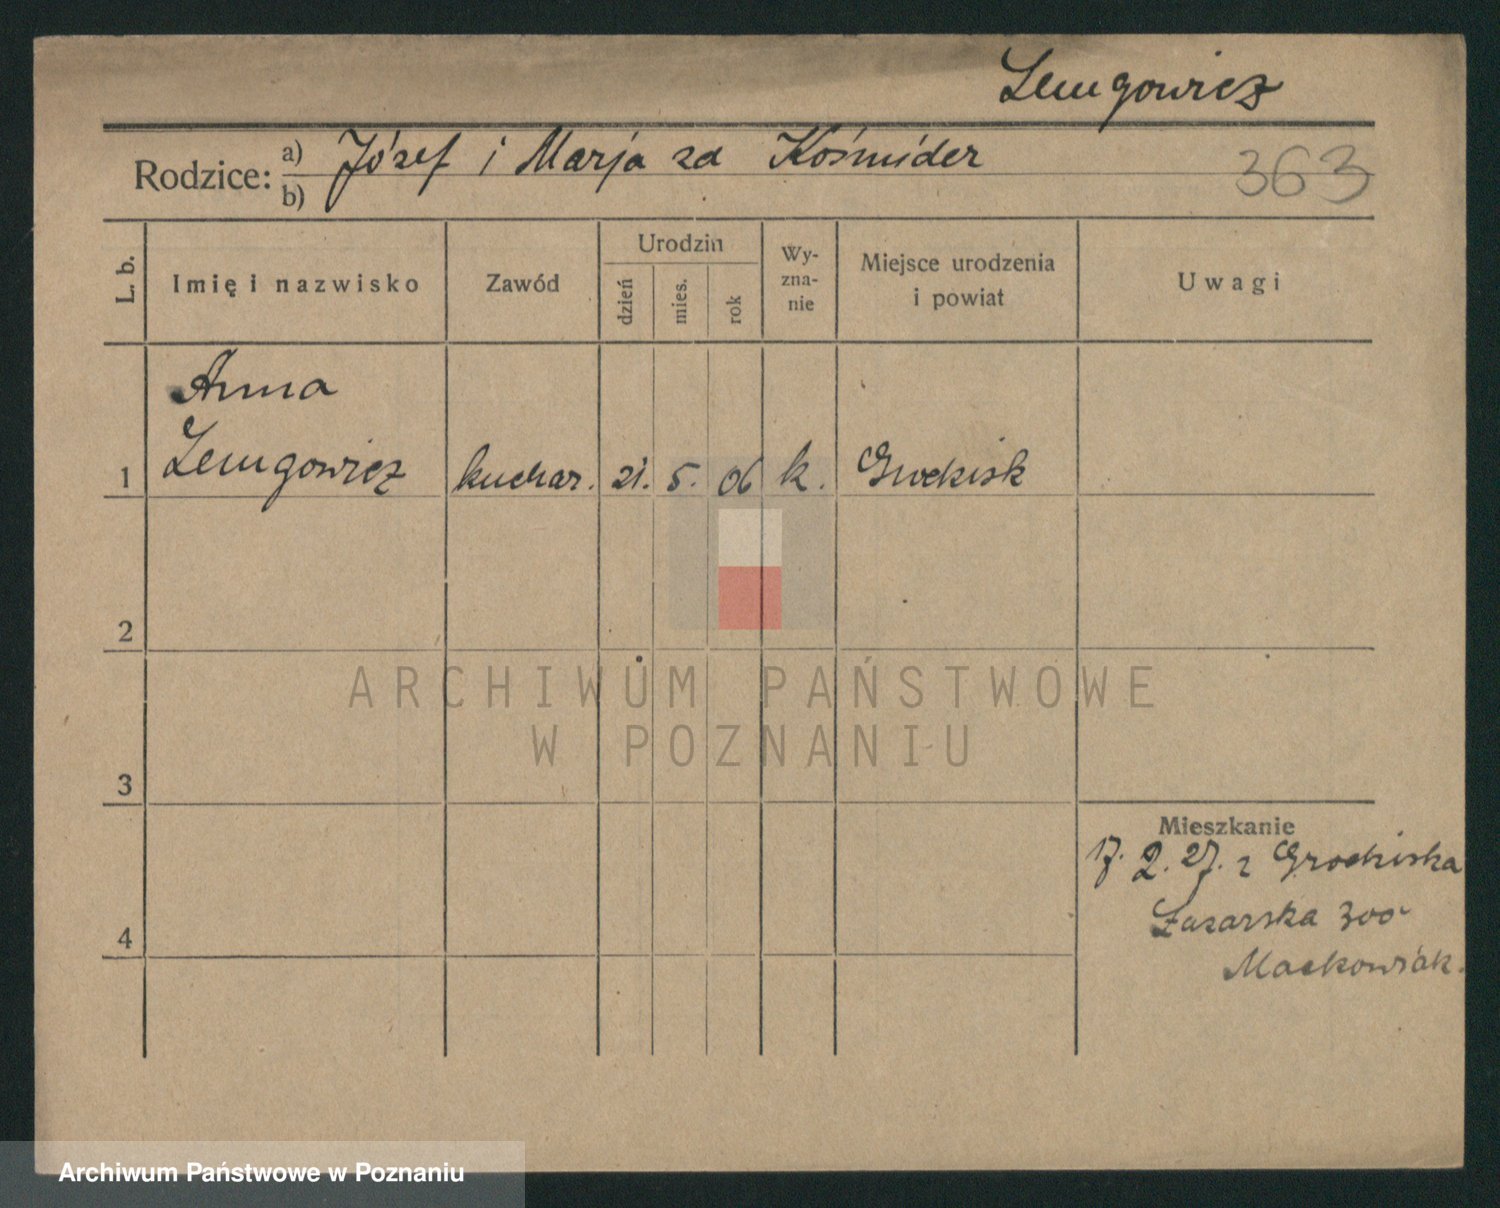 Lemgowicz
Rodzice: a) Józef i Marja zd Kośmider
b)
363
L. b.
Imię i nazwisko
Zawód
Urodzin
dzień
mies.
rok
Wy-
zna-
nie
Miejsce urodzenia
i powiat
Uwagi
Anna
1 Lemgowicz kuchar. 21. 5. 06 k. Grodzisk
2
3
4
Mieszkanie
17. 2. 27. z Grodziska
Łazarska
Maćkowiak.
ARCHIWUM PAŃSTWOWE
W POZNANIU
Archiwum Państwowe w Poznaniu